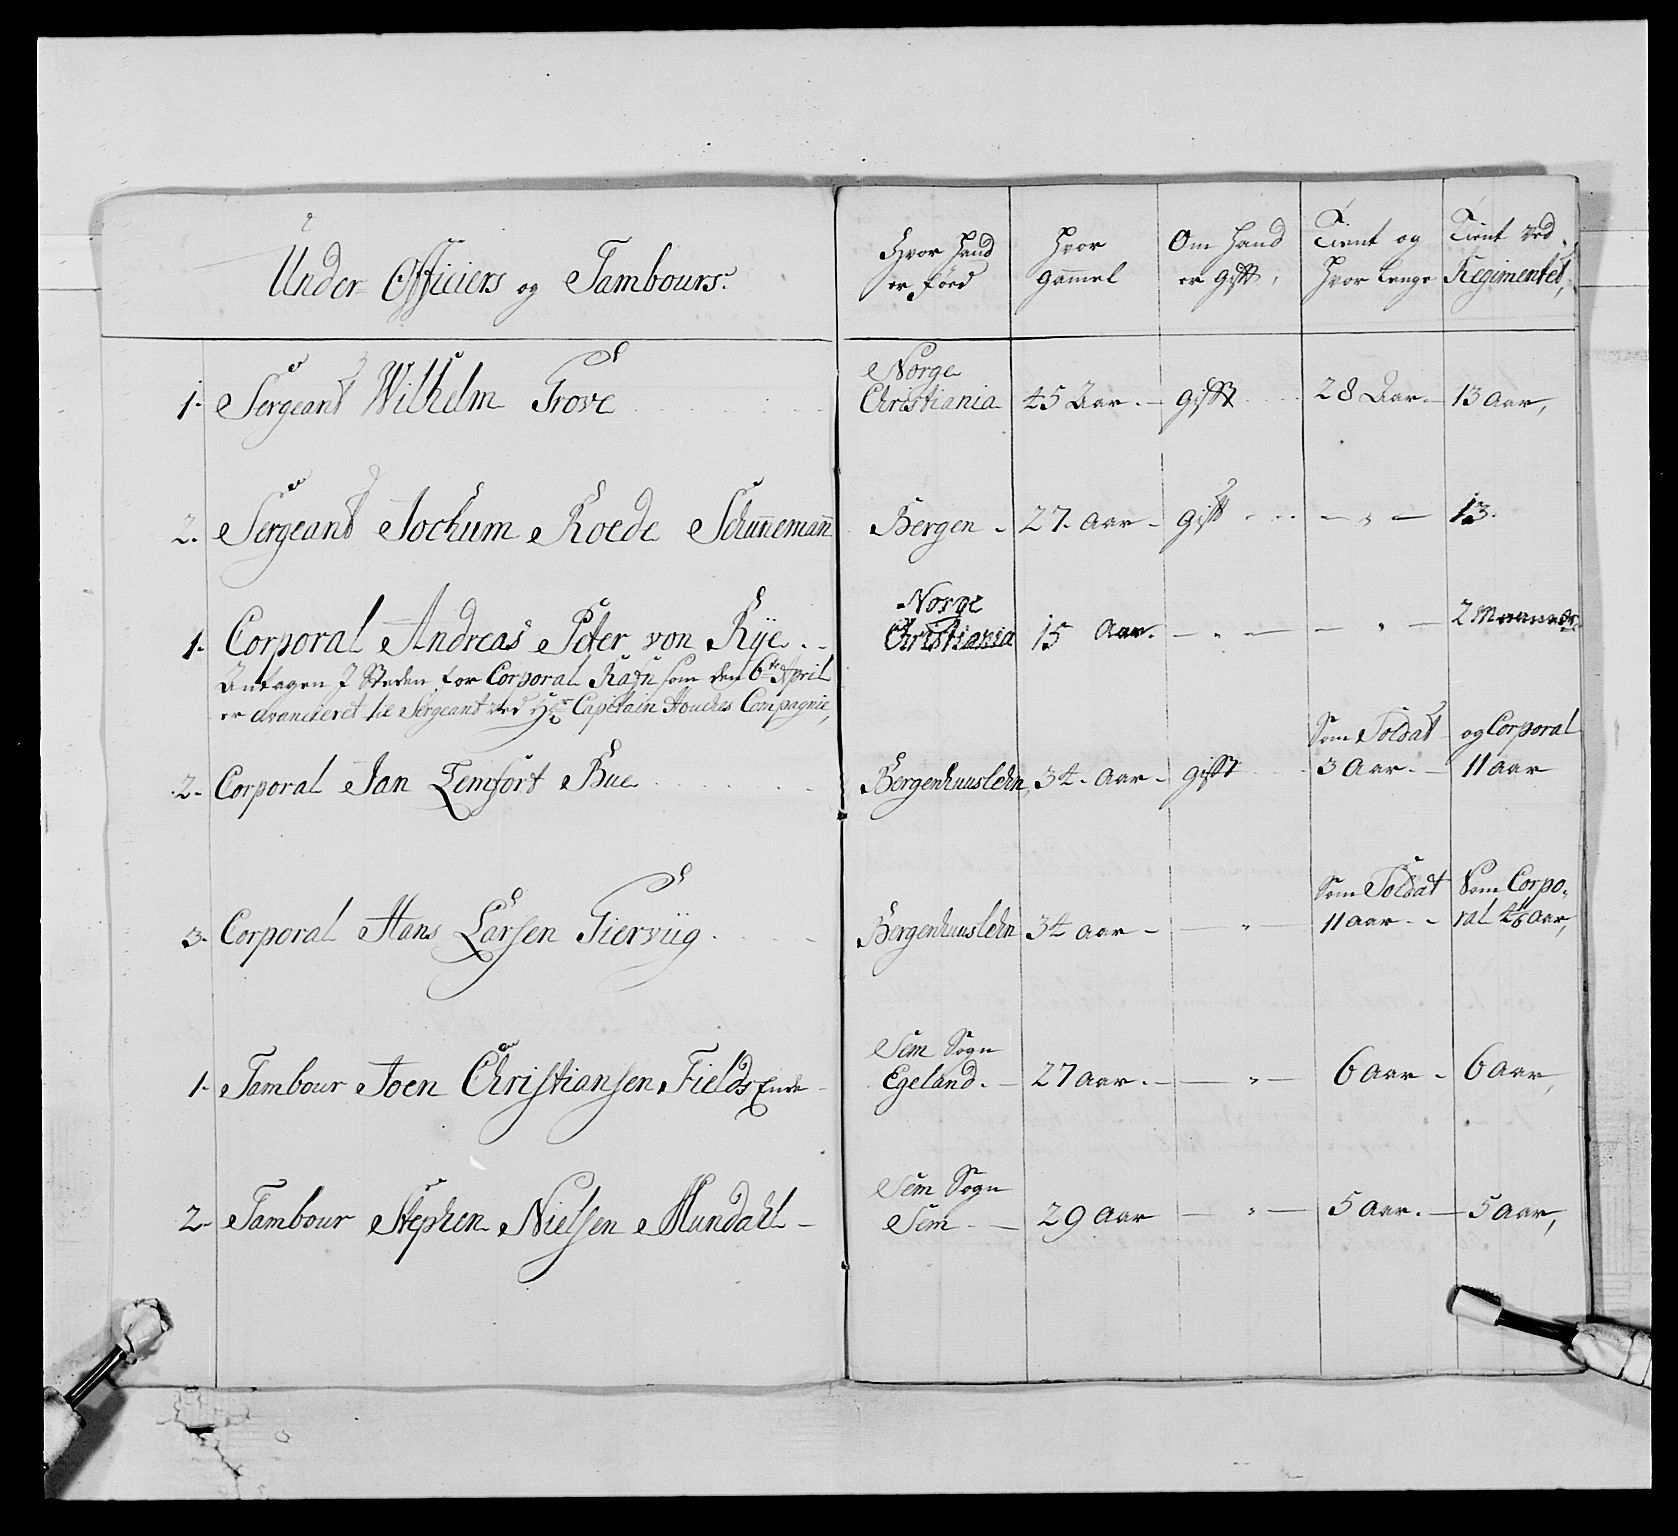 Under Officiers og Tambours. Hvor Hand er Föed Hvor Gammel Om Hand er Gift, Tient og Hvor Lenge Tient ved Regimentet,
1. Sergeant Wilhelm Trove Norge Christiania 45 Aar. gift 28 Aar. 13 Aar,
2. Sergeant Jochum Roede Schünemañ Bergen 27. Aar gift — " — 13.
1. Corporal Andreas Peter von Rÿe. Norge Christiania 15 Aar. — " — — " — 2 Maaneder
Antagen J Steden for Corporal Rafn som den 6te April
er avancieret til Sergeant ved Hr Capitain Houches Compagnie,
2. Corporal Jan Lemfort Bue Bergenhuuslehn, 34. Aar gift Som Soldat 3 Aar. og Corporal 11 Aar
3. Corporal Hans Larsen Tierviig Bergenhuuslehn 34 aar — " — Som Soldat 11 aar Som Corporal aar,
1. Tambour Joen Christiansen Fields Ende Sem Sogn Egeland. 27 aar. — " — 6 Aar 6 Aar,
2. Tambour Stephen Nielsen Mundahl Sem Sogn Sem 29 Aar — " — 5 Aar. 5 Aar,